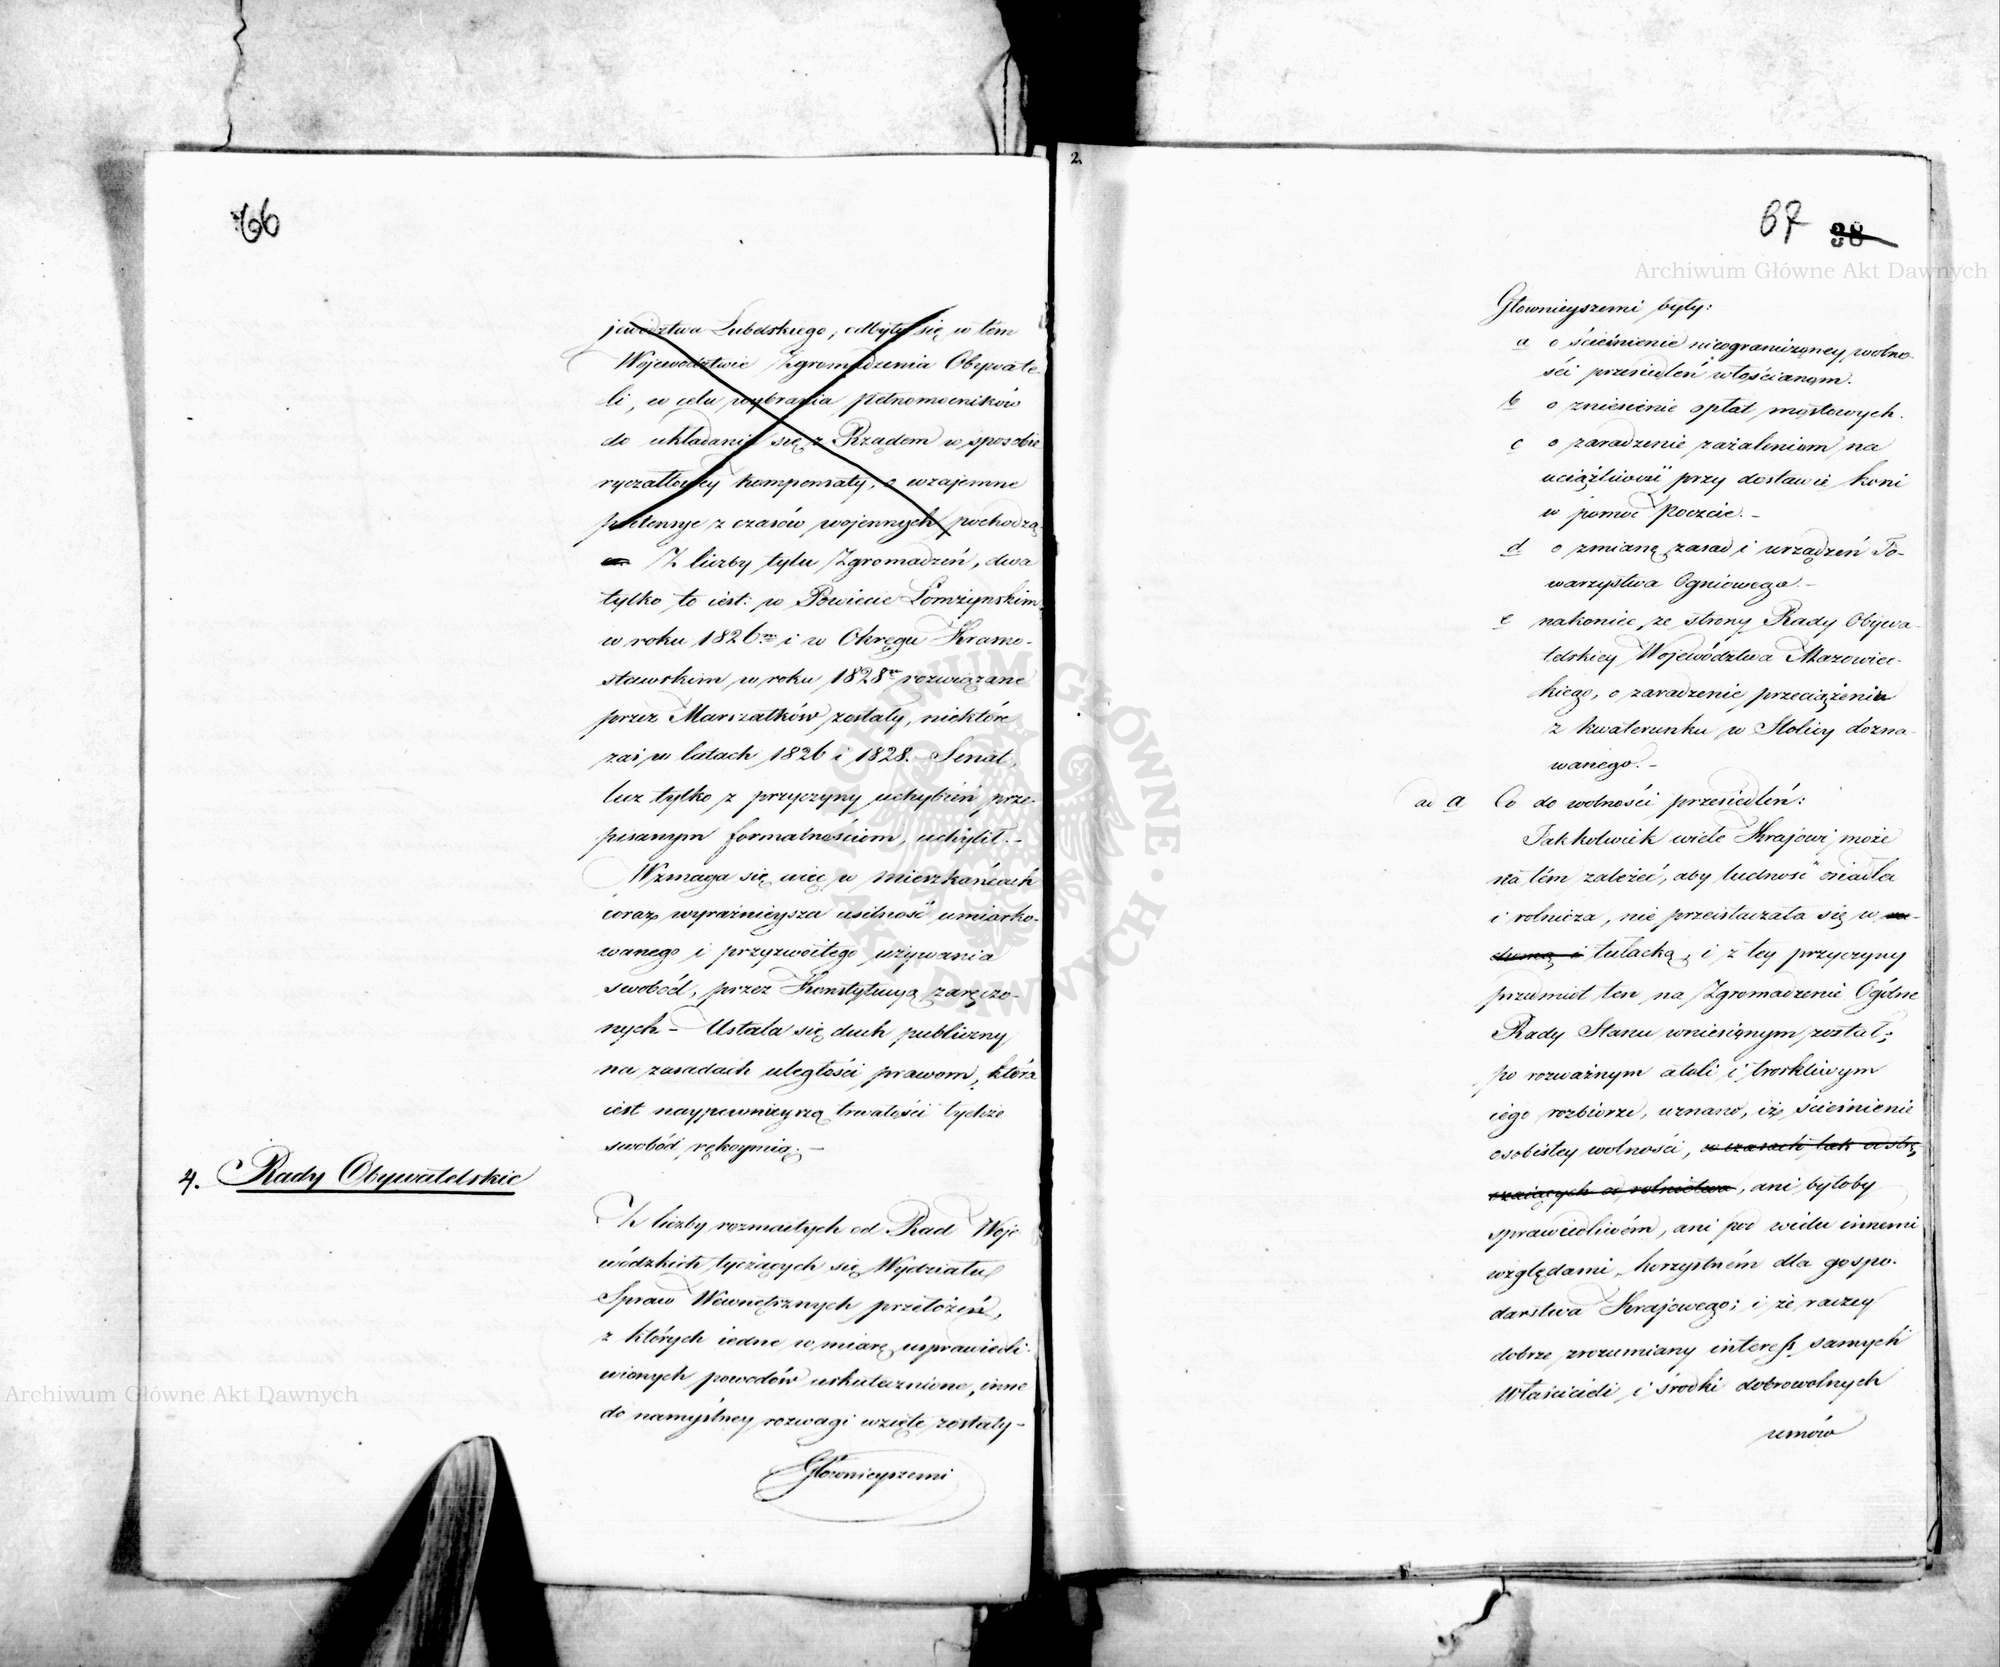 66
jewództwa Lubelskiego, odbyły się w tém
Województwie Zgromadzenia Obywate-
li, w celu wybrania pełnomocników
do układania się z Rządem w sposobie
ryczałtowey kompensaty, o wzajemne
pretensye z czasów wojennych pochodzą-
ce. Z liczby tylu Zgromadzeń, dwa
tylko to iest: w Powiecie Łomżyńskim
w roku 1826m i w Okręgu Krasno-
stawskim w roku 1828m rozwiązane
przez Marszałków zostały, niektóre
zaś w latach 1826 i 1828. Senat,
lecz tylko z przyczyny uchybień prze-
pisanym formalnościom, uchylił. -
Wzmaga się więc w mieszkańcach
coraz wyraźnieysza usilność umiarko-
wanego i przyzwoitego używania
swobód, przez Konstytucyą zaręczo-
nych - Ustala się duch publiczny
na zasadach uległości prawom, która
iest naypewnieyszą trwałości tychże
swobód rękoymią. -
4. Rady Obywatelskie
Z liczby rozmaitych od Rad Woje
wódzkich tyczących się Wydziału
Spraw Wewnętrznych przełożeń,
z których iedne w miarę usprawiedli-
wionych powodów uskutecznione, inne
do namyślney rozwagi wzięte zostały -
Głównieyszemi
2.
67 38
Głownieyszemi były:
a o ścieśnienie nieograniczoney wolno-
ści przesiedleń włościanom.
b o zniesienie opłat mostowych.
c o zaradzenie zażaleniom na
uciążliwość przy dostawie koni
w pomoc Poczcie. -
d o zmianę zasad i urządzeń To-
warzystwa Ogniowego. -
e nakoniec, ze strony Rady Obywa-
telskiey Województwa Mazowiec-
kiego, o zaradzenie przeciążeniu
z kwaterunku w Stolicy dozna-
wanego. -
ad a Co do wolności przesiedleń:
Jakkolwiek wiele Krajowi może
na tém zależeć, aby ludność osiadła
i rolnicza, nie przeistaczała się w
i tułacką, i z tey przyczyny
przedmiot ten na Zgromadzenie Ogólne
Rady Stanu wniesionym został;
po rozważnym atoli i troskliwym
iego rozbiorze, uznano, iż ścieśnienie
osobistey wolności, w czasach tak odstrę
czaiących od rolnictwa, ani byłoby
sprawiedliwém, ani pod wielu innemi
względami, korzystném dla gospo-
darstwa Krajowego; i że raczey
dobrze zrozumiany interess samych
Właścicieli i środki dobrowolnych
umów
Archiwum Główne Akt Dawnych
Archiwum Główne Akt Dawnych
ARCHIWUM GŁÓWNE · AKT DAWNYCH ·